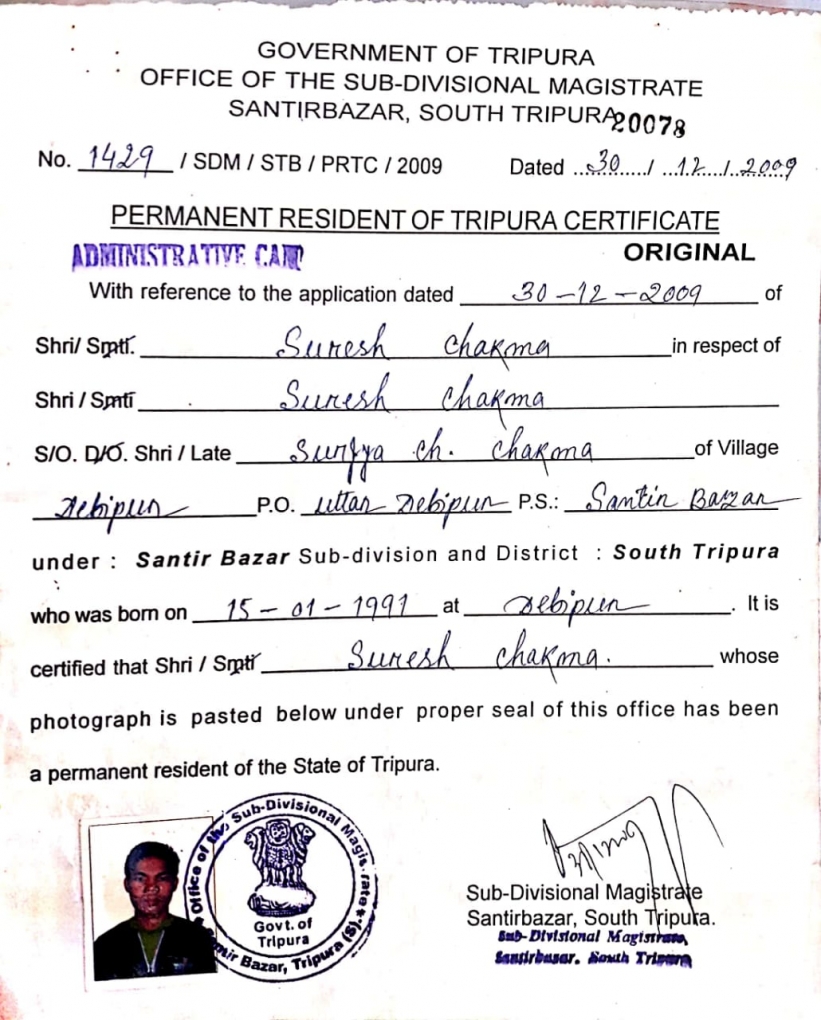 GOVERNMENT OF TRIPURA
OFFICE OF THE SUB-DIVISIONAL MAGISTRATE
SANTIRBAZAR, SOUTH TRIPURA
20078
No. 1429 / SDM / STB / PRTC / 2009 Dated 30 / 12 / 2009
PERMANENT RESIDENT OF TRIPURA CERTIFICATE
ADMINISTRATIVE CAMP ORIGINAL
With reference to the application dated 30-12-2009 of
Shri/ Smti. Suresh Chakma in respect of
Shri / Smti Suresh Chakma
S/O. D/O. Shri / Late Surjya Ch. Chakma of Village
Debipur P.O. Uttar Debipur P.S.: Santir Bazar
under : Santir Bazar Sub-division and District : South Tripura
who was born on 15-01-1991 at Debipur. It is
certified that Shri / Smti Suresh Chakma. whose
photograph is pasted below under proper seal of this office has been
a permanent resident of the State of Tripura.
Office of the Sub-Divisional Magistrate
Govt. of
Tripura
Santir Bazar, Tripura (S)
Sub-Divisional Magistrate
Santirbazar, South Tripura.
Sub-Divisional Magistrate,
Santirbazar, South Tripura